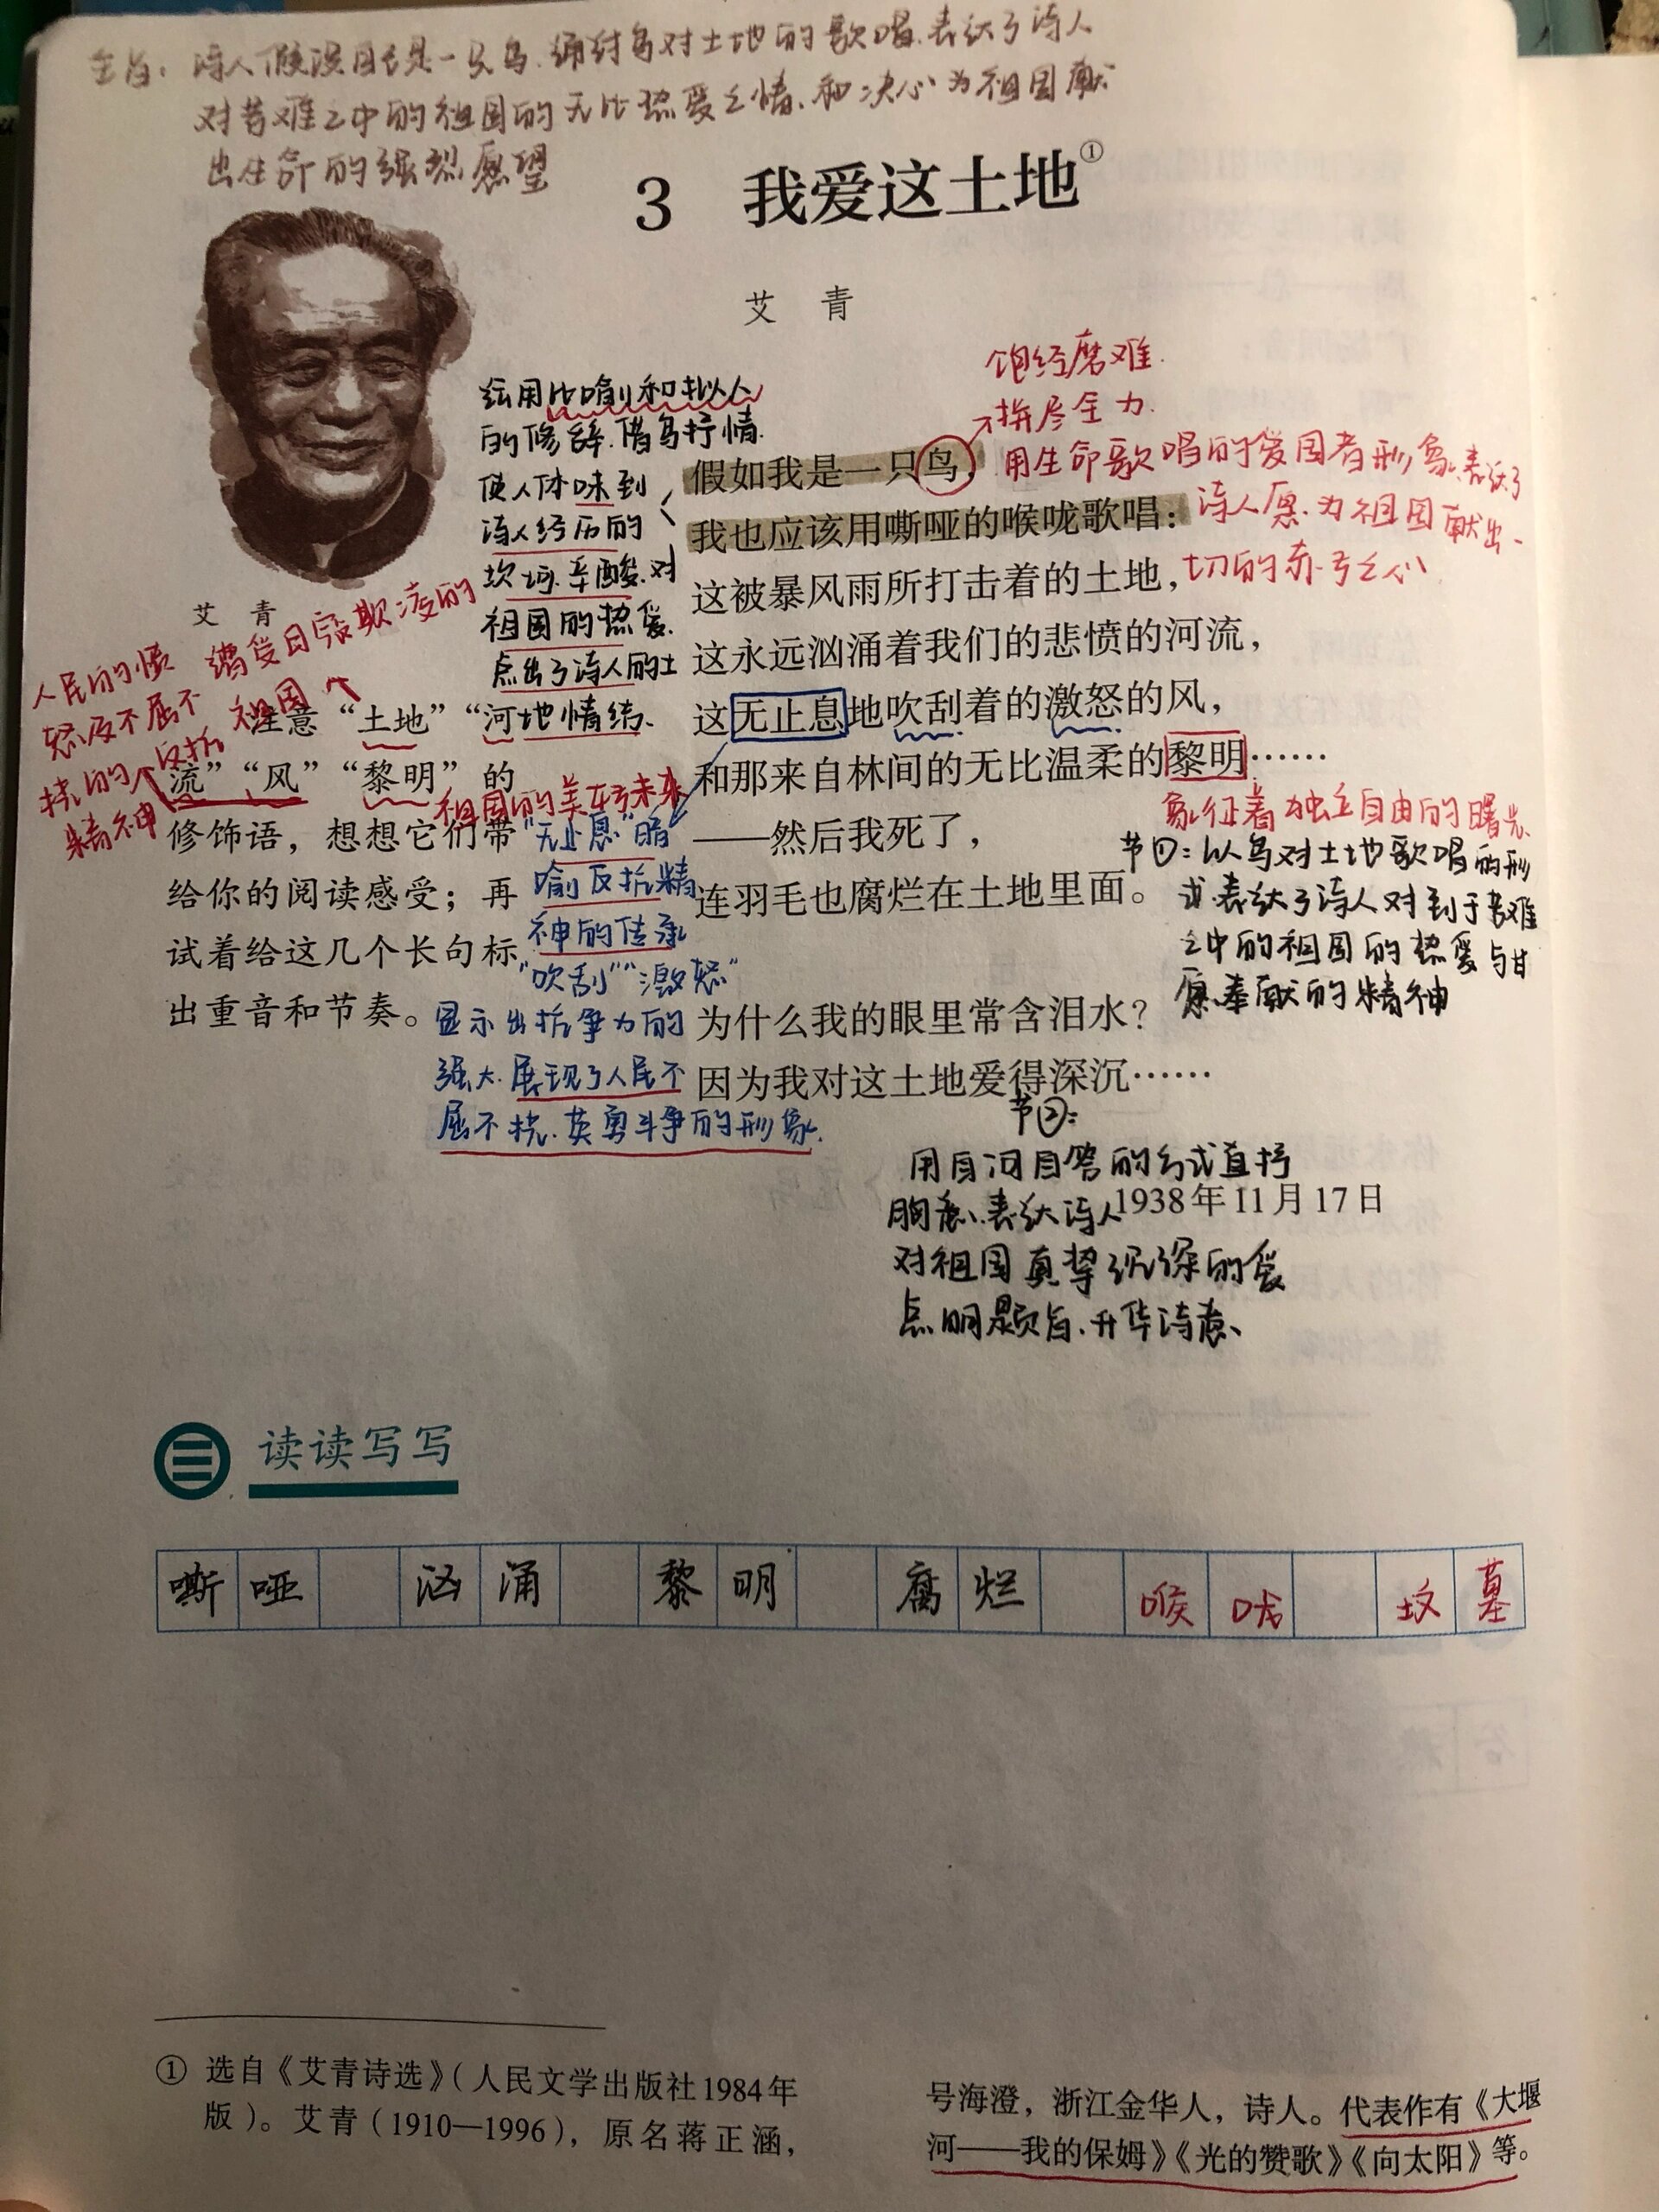 主旨：诗人假设自己是一只鸟，通过鸟对土地的歌唱，表达了诗人
对苦难之中的祖国的无比热爱之情，和决心为祖国献
出生命的强烈愿望
3 我爱这土地①
艾 青
艾 青
运用比喻和拟人
的修辞，借鸟抒情，
使人体味到
诗人经历的
坎坷、辛酸、对
祖国的热爱，
点出了诗人的土
地情结、
饱经磨难、
拼尽全力、
用生命歌唱的爱国者形象，表达了
诗人愿为祖国献出一
切的赤子之心
假如我是一只鸟，
我也应该用嘶哑的喉咙歌唱：
这被暴风雨所打击着的土地，
这永远汹涌着我们的悲愤的河流，
这无止息地吹刮着的激怒的风，
和那来自林间的无比温柔的黎明……
——然后我死了，
连羽毛也腐烂在土地里面。
为什么我的眼里常含泪水？
因为我对这土地爱得深沉……
1938年11月17日
人民的愤
怒及不屈不
挠的反抗
精神
祖国
祖国的美好未来
注意“土地”“河
流”“风”“黎明”的
修饰语，想想它们带
给你的阅读感受；再
试着给这几个长句标
出重音和节奏。
“无止息”暗
喻反抗精
神的传承
“吹刮”“激怒”
显示出抗争力的
强大，展现了人民不
屈不挠、英勇斗争的形象.
象征着独立自由的曙光、
节①：以鸟对土地歌唱的形
式，表达了诗人对于苦难
之中的祖国的热爱与甘
愿奉献的精神
节②：
用自问自答的方式直抒
胸臆、表达诗人
对祖国真挚深沉的爱
点明题旨，升华诗意、
读读写写
嘶哑 汹涌 黎明 腐烂 喉咙 坟墓
① 选自《艾青诗选》（人民文学出版社1984年
版）。艾青（1910—1996），原名蒋正涵，
号海澄，浙江金华人，诗人。代表作有《大堰
河——我的保姆》《光的赞歌》《向太阳》等。